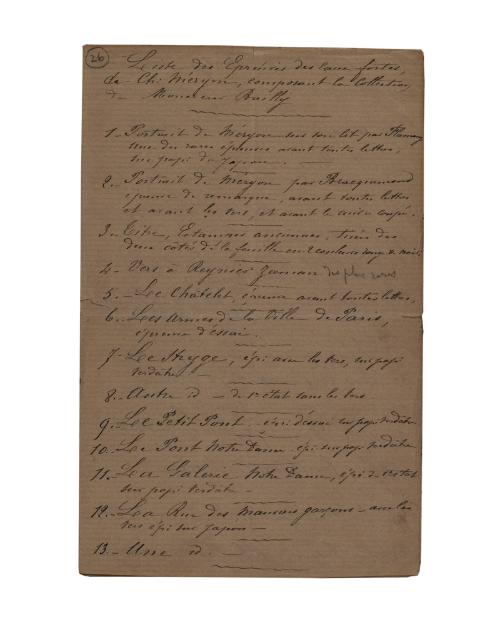 26
Liste des Epreuves des eaux fortes,
de Ch: Meryon, composant la Collection
de Monsieur
1 - Portrait de Meryon sur son lit par Flameng
une des rares épreuves avant toutes lettres,
sur papi du Japon. -
2 - Portrait de Meryon par Bracquemond
épreuve de remarque, avant toutes lettres
et avant les vers, et avant le cuivre coupé.
3 - Titre, Estampes anciennes, tirée des
deux côtés de la feuille en 2 couleurs rouge & noir.
4 - Vers à Reynier Zeeman des plus rares
5 - Le Châtelet, épreuve avant toutes lettres.
6 - Les Armes de la Ville de Paris,
épreuve d'éssai.
7 - Le Stryge, épr: avec les vers, sur papi
verdâtre -
8 - Autre id - de 1er état sans les vers
9 - Le Petit Pont épr: d'éssai sur papi verdâtre
10 - Le Pont Notre Dame épr: sur papi verdâtre
11 - La Galerie Notre Dame, épr: de 1er état
sur papi verdâtre -
12 - La Rue des Mauvais garçons - avec les
vers épr: sur Japon -
13 - Une id. -